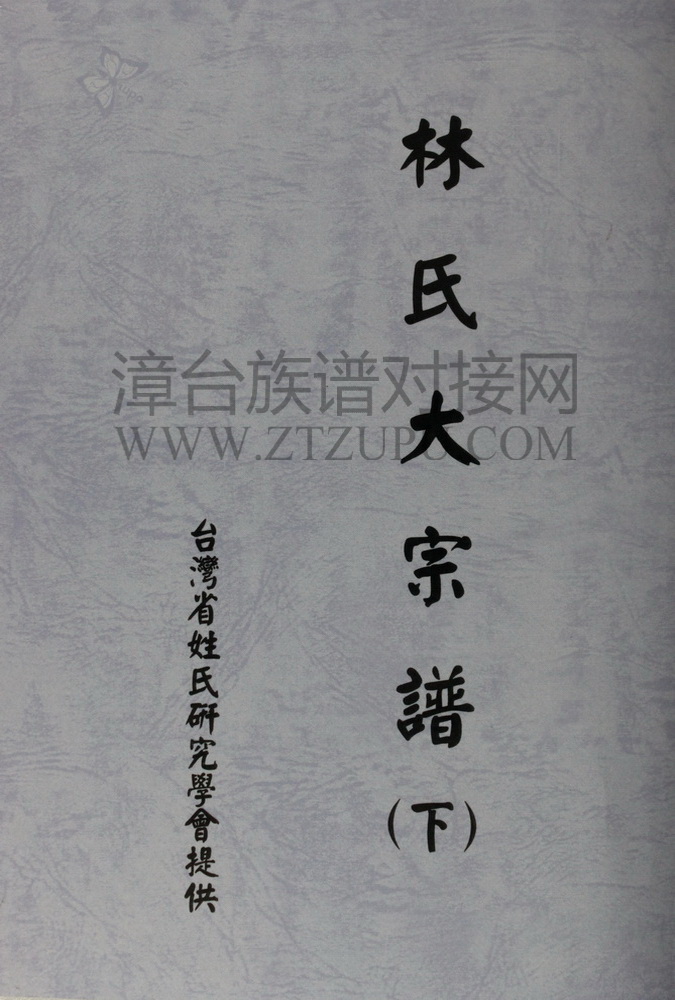 林氏大宗譜(下)
台灣省姓氏研究學會提供
漳台族谱对接网
WWW.ZTZUPU.COM